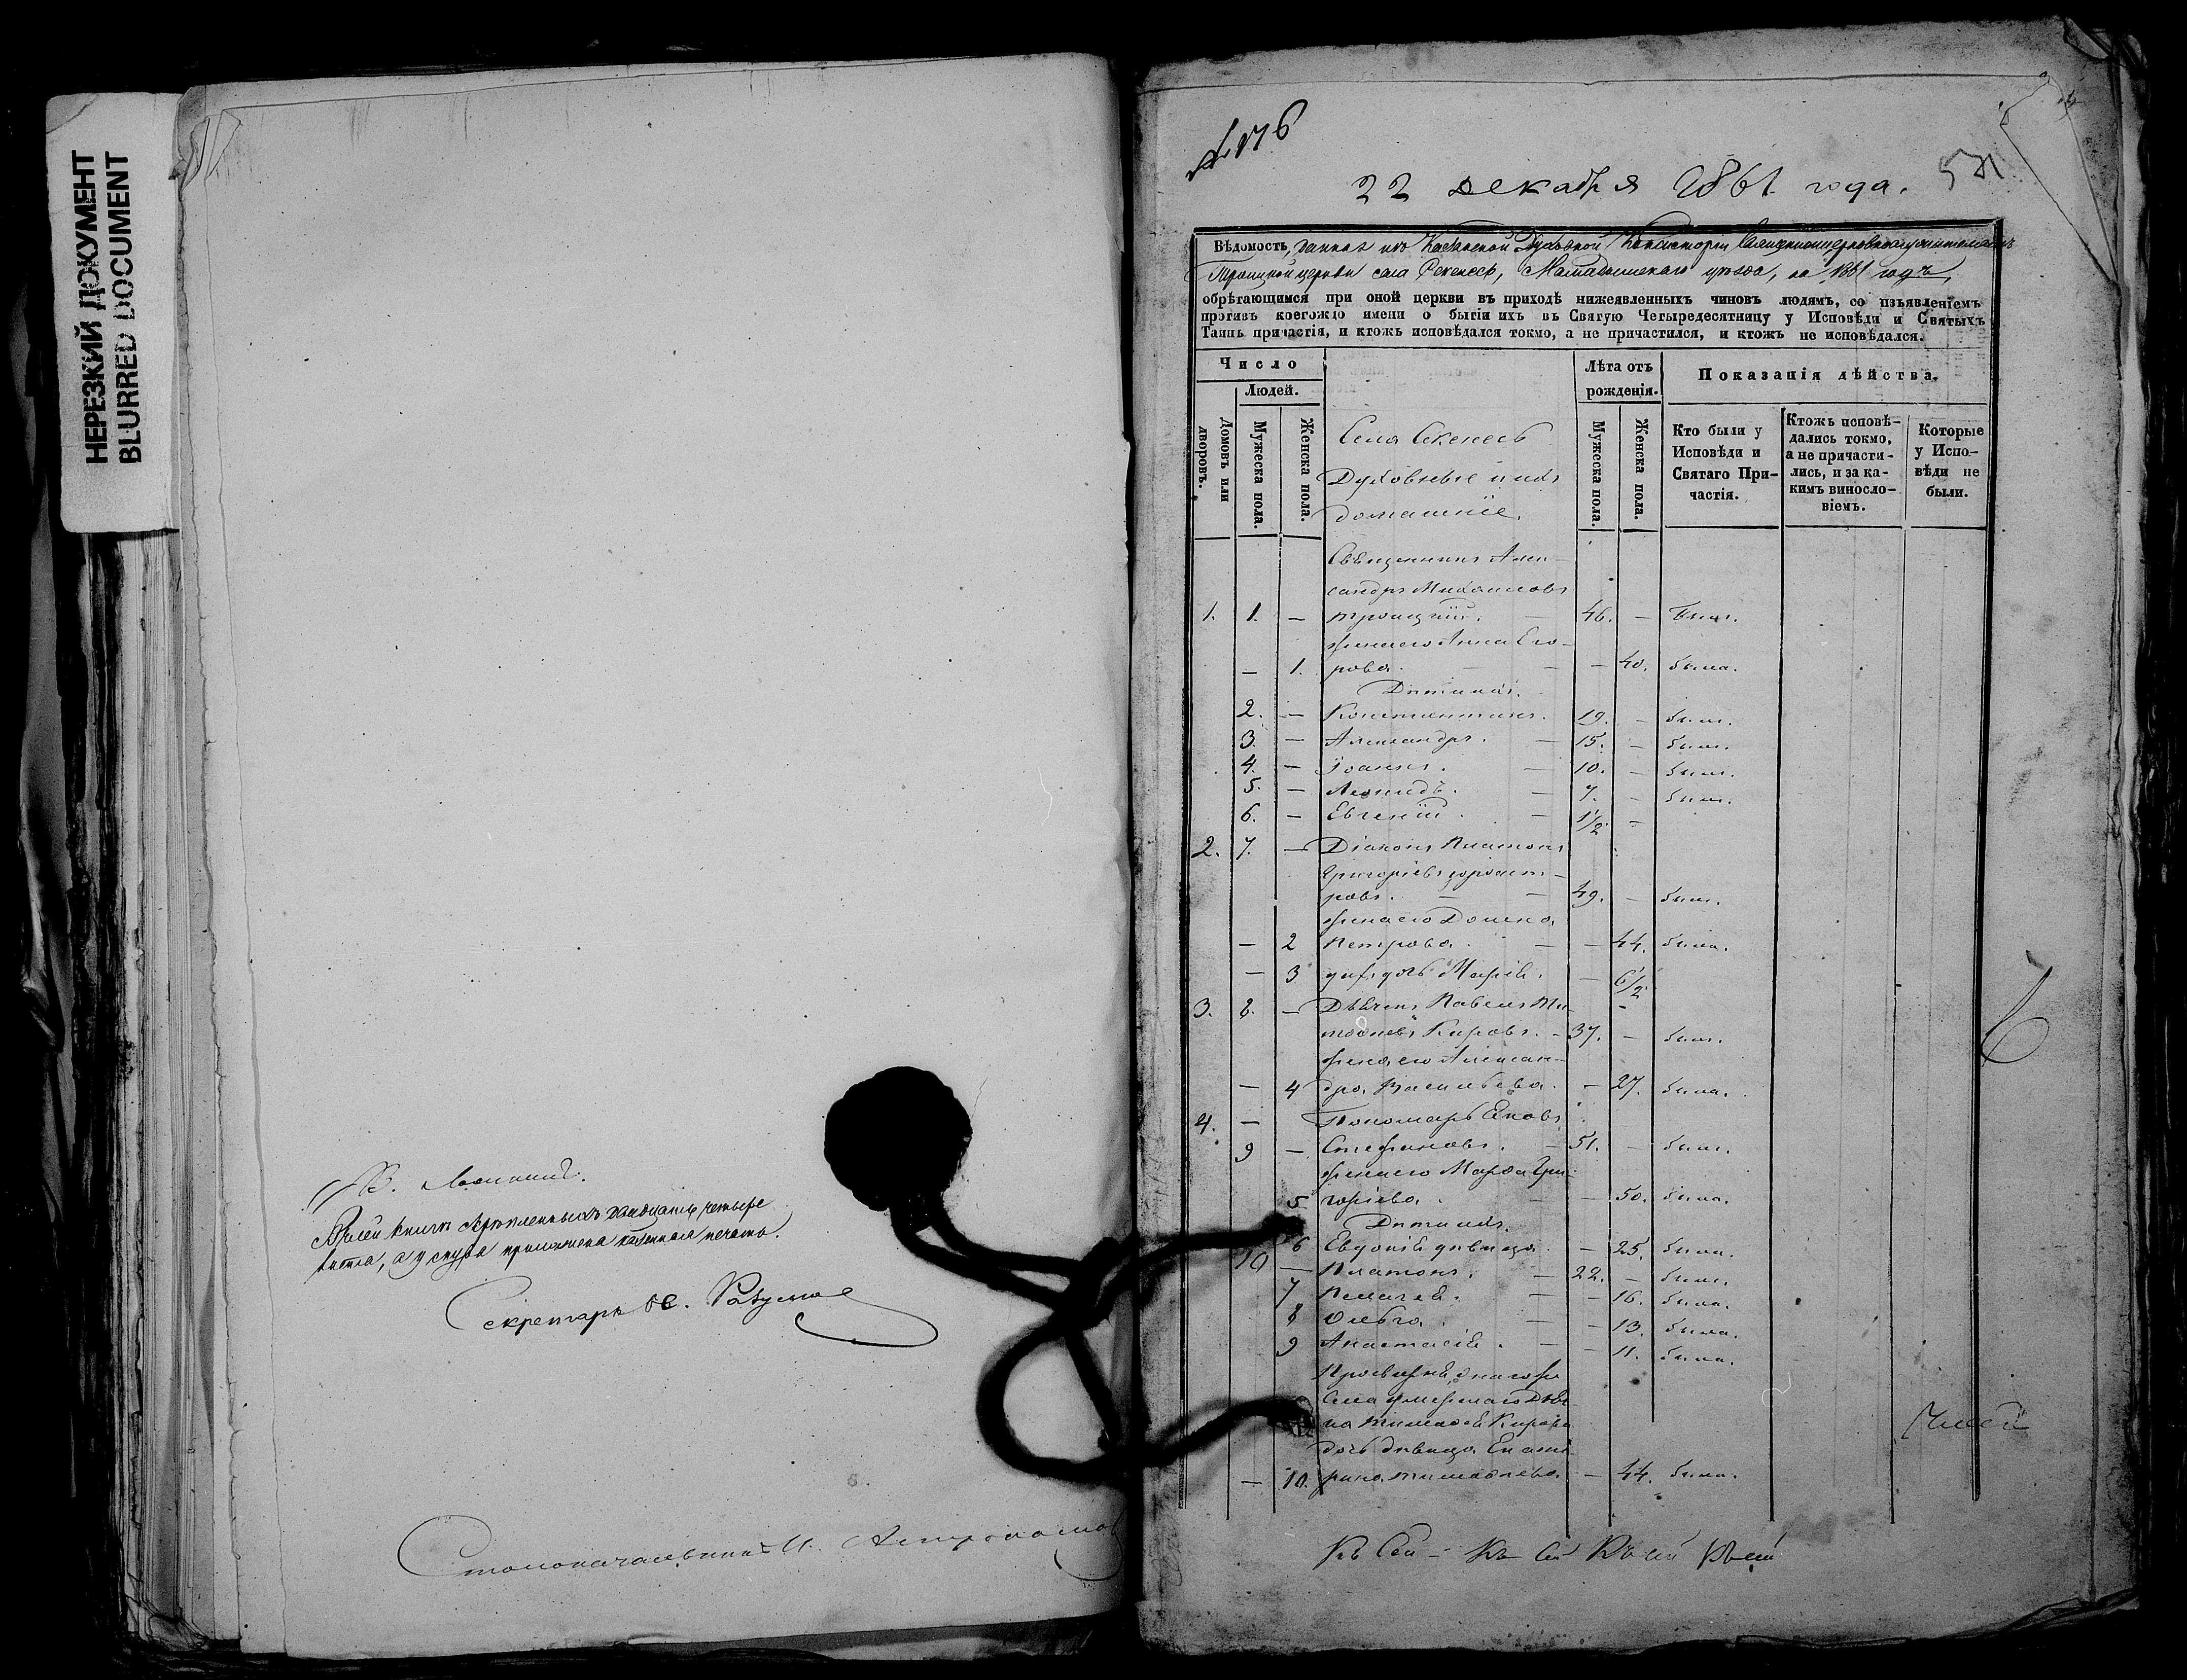 НЕРЕЗКИЙ ДОКУМЕНТ
BLURRED DOCUMENT
В сей книги скрѣпленныхъ двадцать четыре
листа, а у снура приложена казенная печать.
Секретарь
Столоначальникъ
№ 176
22 декабря 1861 года.
Вѣдомость, данная изъ Казанской Духовной Консисторіи Священноцерковнослужителямъ
Троицкой церкви села Секенесь, Мамадышскаго уѣзда, на 1861 годъ,
обрѣтающимся при оной церкви въ приходѣ нижеявленныхъ чиновъ людямъ, со изъявленіемъ
противъ коегождо имени о бытіи ихъ въ Святую Четыредесятницу у Исповѣди и Святыхъ
Таинъ причастія, и ктожъ исповѣдался токмо, а не причастился, и ктожъ не исповѣдался.
Число
Людей.
Домовъ или дворовъ.
Мужеска пола.
Женска пола.
Села Секенесь
Духовные и ихъ
домашніе.
Лѣта отъ рожденія.
Мужеска пола.
Женска пола.
Показанія дѣйства.
Кто были у Исповѣди и Святаго При-частія.
Ктожъ исповѣ-дались токмо, а не причасти-лись, и за ка-кимъ винослo-віемъ.
Которые у Испо-вѣди не были.
Священникъ Алек-
сандръ Михаиловъ
1. 1. — Троицкій. — 46. — былъ.
жена его Анна Его-
— 1. рова. — — 40. была.
Дѣти ихъ.
2. — Константинъ. 19. — былъ.
3. — Александръ. — 15. — былъ.
4. — Іоаннъ. — 10. — былъ.
5. — Леонидъ. — 7. — былъ.
6. — Евгеній. — 1 1/2. —
2. 7. — Діаконъ Платонъ
Григорьевъ
ровъ. — 49. — былъ.
жена его Домна
— 2 Петрова. — — 44. была.
— 3 дочь Марія. — 6 1/2.
3. 8. — Дьячекъ Павелъ Ти-
мофеевъ Кировъ. — 37. — былъ.
жена его Алексан-
— 4 дра Васильева. — 27. была.
4. — Пономарь Іаковъ
9 — Стефановъ. — 51. — былъ.
жена его Марѳа Гри-
5 горіева. — — 50. была.
Дѣти ихъ.
6 Евдокія дѣвица. — 25. была.
10 — Платонъ. — 22. — былъ.
7 Пелагея. — — 16. была.
8 Ольга. — — 13. была.
9 Анастасія. — — 11. была.
Просвирня, онаго же
Села умершаго Дья-
ка Тимофея Кирова
дочь дѣвица Екате-
— 10. рина Тимофеева — 44. была.
Къ Сей - Къ Сей Къ сей Къ сей